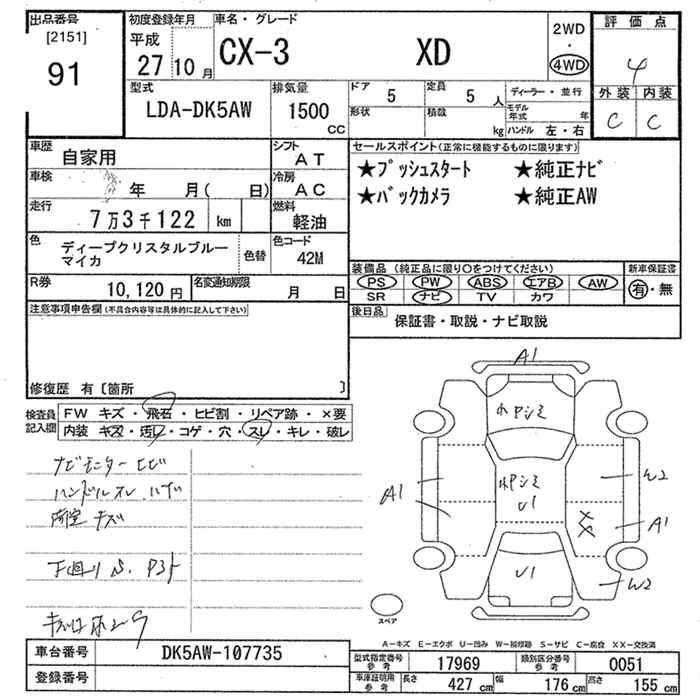 出品番号
[2151]
91
初度登録年月
平成
27 10 月
車名・グレード
CX-3 XD
2WD
・
4WD
評価点
4
外装 内装
C C
型式
LDA-DK5AW
排気量
1500
CC
ドア 5
定員 5 人
形状
積載 kg
ディーラー・並行
モデル年式 年
ハンドル 左・右
車歴 自家用
シフト AT
車検 年 月( 日)
冷房 AC
走行 7万3千122 km
燃料 軽油
色 ディープクリスタルブルー
マイカ
色替
色コード 42M
R券 10,120 円
名変通知期限 月 日
セールスポイント(正常に機能するものに限ります)
★プッシュスタート ★純正ナビ
★バックカメラ ★純正AW
装備品 (純正品に限り○をつけてください)
新車保証書
PS PW ABS エアB AW
有・無
SR ナビ TV カワ
後日品 保証書・取説・ナビ取説
注意事項申告欄(不具合内容等は具体的に記入して下さい)
修復歴 有〔箇所 〕
検査員記入欄
FW キズ・飛石・ヒビ割・リペア跡・×要
内装 キズ・汚レ・コゲ・穴・スレ・キレ・破レ
ナビモニターヒビ
ハンドルスレ
キズ
下回りS.
A1
ホPシミ
ホPシミ
U1
A1
W2
XX
A1
U1
W2
スペア
A-キズ E-エクボ U-凹み W-補修跡 S-サビ C-腐食 XX-交換済
車台番号 DK5AW-107735
登録番号
型式指定番号 参考 17969
類別区分番号 参考 0051
車庫証明用 参考 長さ 427 cm 幅 176 cm 高さ 155 cm